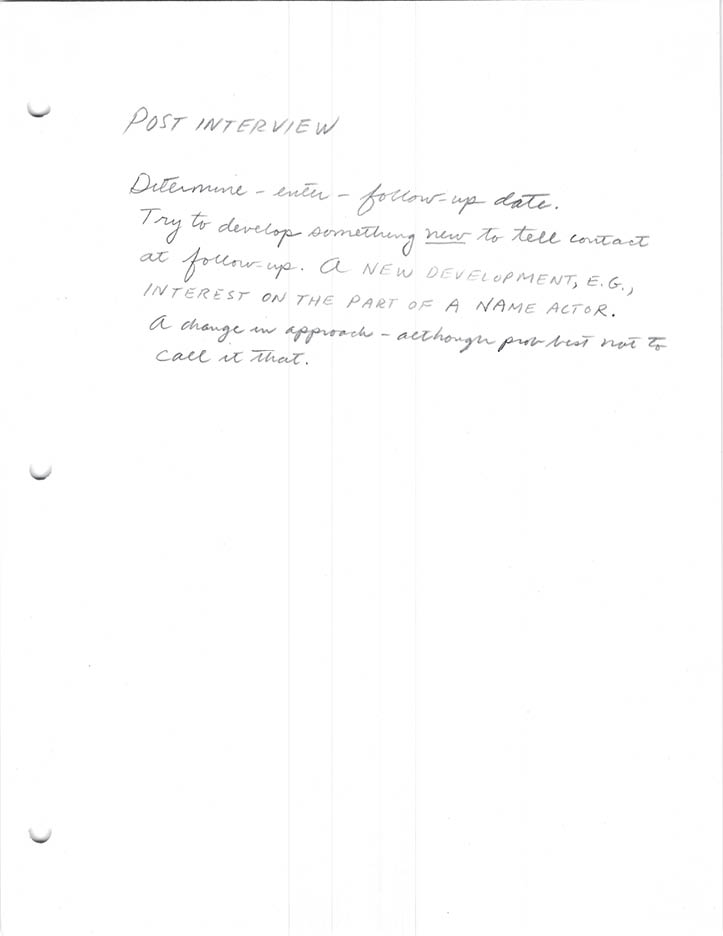 POST INTERVIEW
Determine - enter - follow-up date.
Try to develop something new to tell contact
at follow-up. A NEW DEVELOPMENT, E.G.,
INTEREST ON THE PART OF A NAME ACTOR.
A change in approach - although prob best not to
call it that.